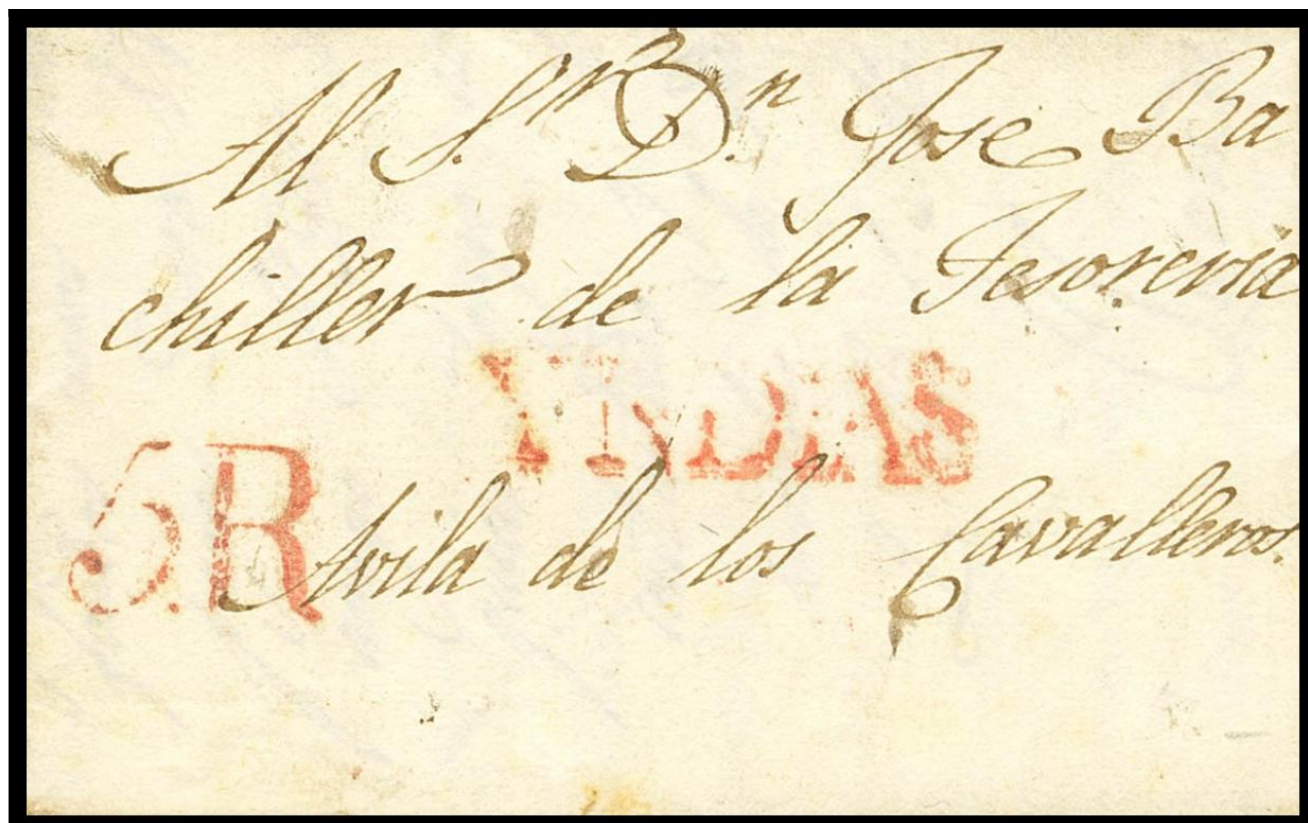 Al S.r D.n Jose Ba
chiller de la Tesoreria
YNDIAS
5.R
Avila de los Cavalleros.